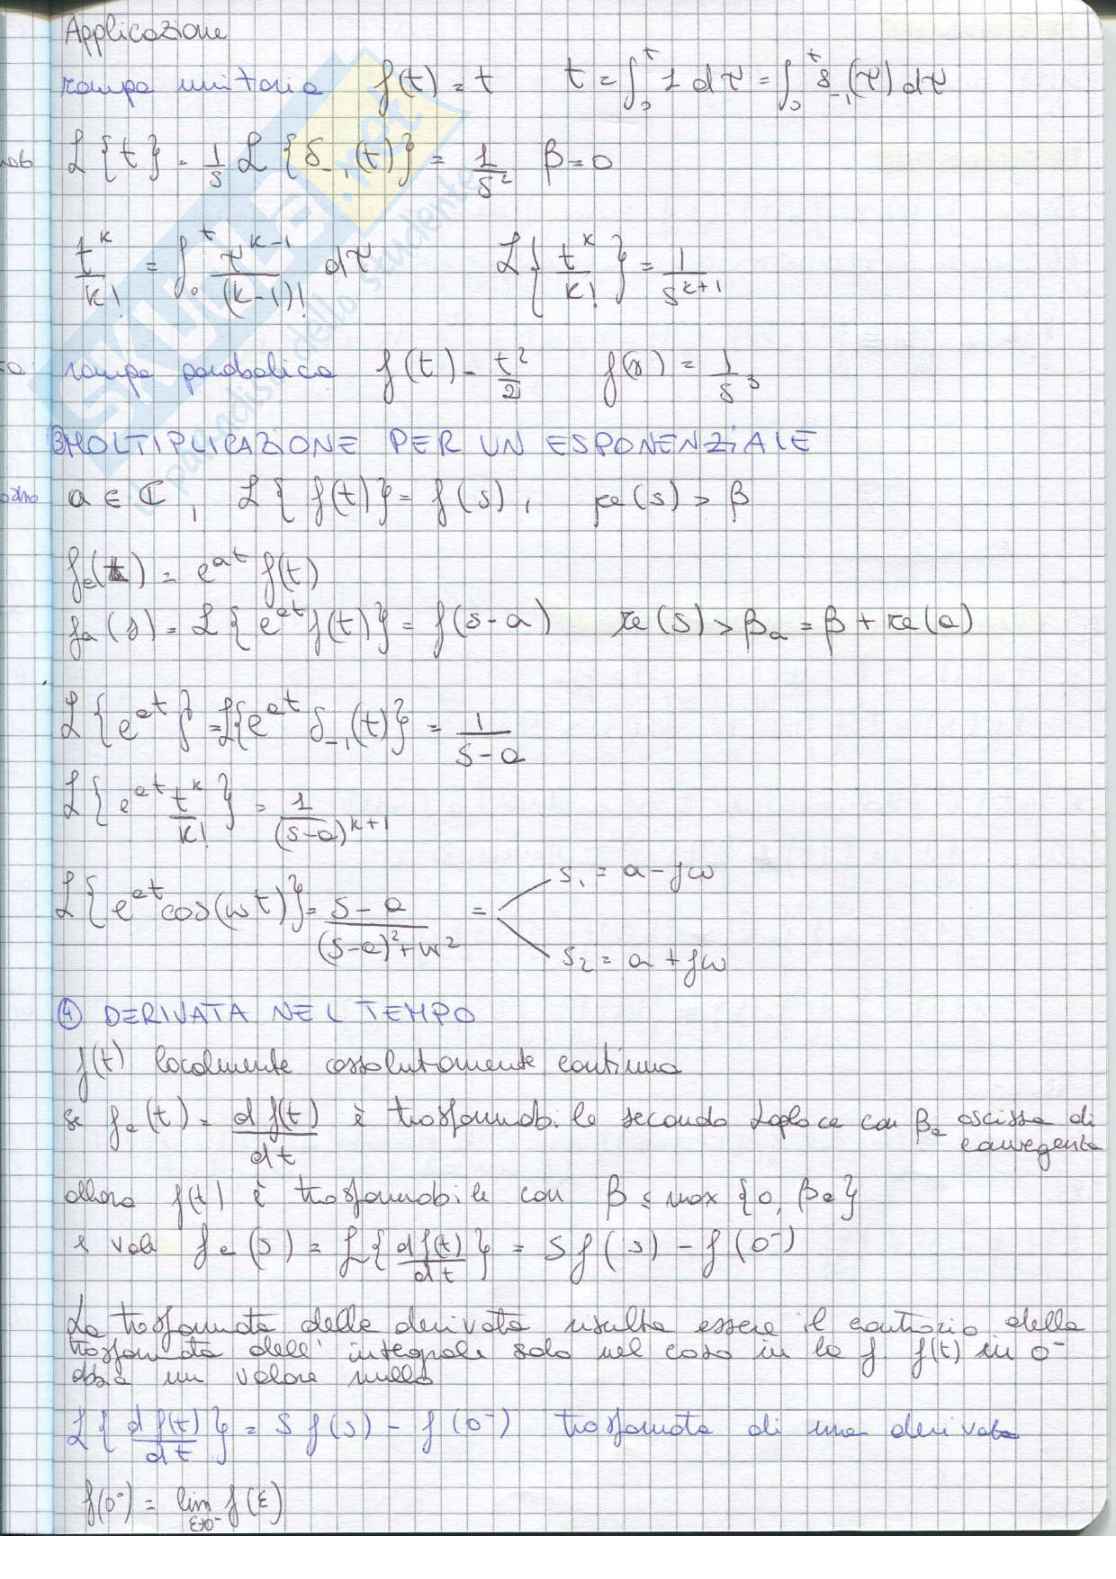 Applicazione
rampa unitaria f(t) = t t = ∫₀ᵗ 1 dτ = ∫₀ᵗ δ₋₁(τ) dτ
L{t} = 1/s L{δ₋₁(t)} = 1/s² β = 0
t^k/k! = ∫₀ᵗ τ^(k-1)/(k-1)! dτ L{t^k/k!} = 1/s^(k+1)
rampa parabolica f(t) = t²/2 f(s) = 1/s³
③ MOLTIPLICAZIONE PER UN ESPONENZIALE
a ∈ ℂ, L{f(t)} = f(s), re(s) > β
fₐ(t) = e^(at) f(t)
fₐ(s) = L{e^(at) f(t)} = f(s-a) re(s) > βₐ = β + re(a)
L{e^(at)} = L{e^(at) δ₋₁(t)} = 1/(s-a)
L{e^(at) t^k/k!} = 1/(s-a)^(k+1)
L{e^(at) cos(ωt)} = (s-a)/((s-a)²+ω²) = s₁ = a - jω
s₂ = a + jω
④ DERIVATA NEL TEMPO
f(t) localmente assolutamente continua
se fₑ(t) = d f(t)/dt è trasformabile secondo Laplace con βₑ ascissa di
convergente
allora f(t) è trasformabile con β ≤ max {0, βₑ}
e vale fₑ(s) = L{d f(t)/dt} = s f(s) - f(0⁻)
La trasformata della derivata risulta essere il contrario della
trasformata dell'integrale solo nel caso in la f f(t) in 0⁻
abbia un valore nullo
L{d f(t)/dt} = s f(s) - f(0⁻) trasformata di una derivata
f(0⁻) = lim ε→0⁻ f(ε)
SKUOLA.net
paradiso dello studente